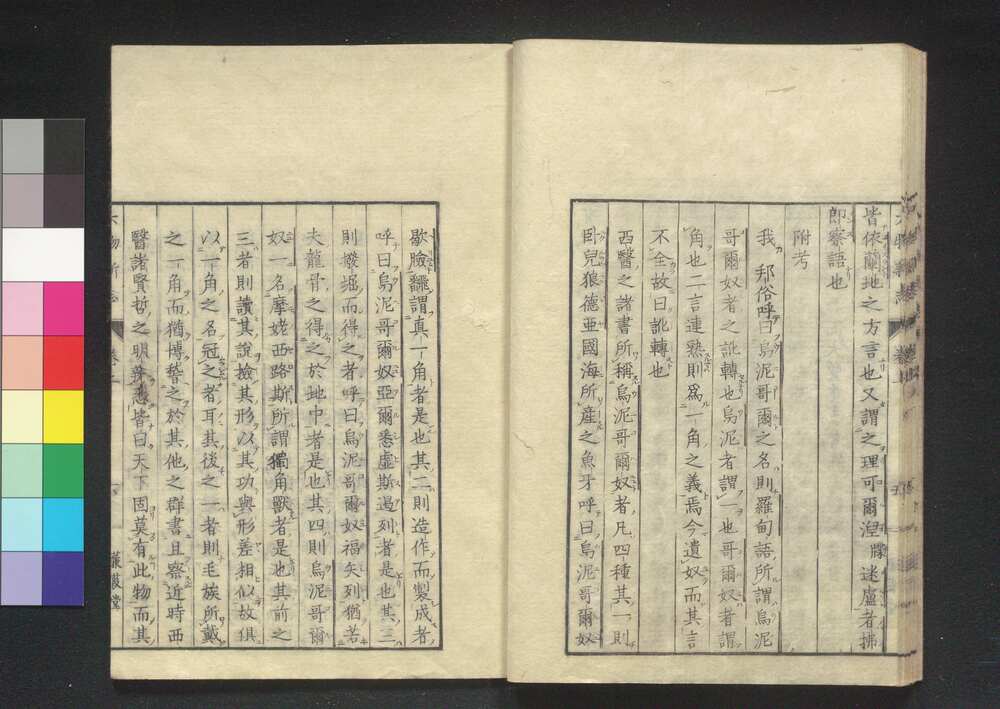 皆依蘭地之方言也又謂之理可爾涅牒迷盧者拂
郎察語也
附考
我 邦俗呼曰烏泥哥爾之名則羅甸語所謂烏泥
哥爾奴者之訛轉也烏泥者謂一也哥爾奴者謂
角也二言連熟則爲一角之義焉今遺奴而其言
不全故曰訛轉也
西醫之諸書所稱烏泥哥爾奴者凡四種其一則
臥兒狼德亞國海所產之魚牙呼曰烏泥哥爾奴
歇臉飜謂真一角者是也其二則造作而製成者
呼曰烏泥哥爾奴亞爾悉虛斯過列者是也其三
則撥堀而得之者呼曰烏泥哥爾奴福矢列猶若
夫龍骨之得之於地中者是也其四則烏泥哥爾
奴一名摩姥西路斯所謂獨角獸者是也其前之
三者則讀其說撿其形以其功與形差相似故俱
以一角之名冠之者耳其後之一者則毛族所戴
之一角而猶博稽之於其他之群書且察近時西
醫諸賢哲之明悉皆曰天下固莫有此物而其
六物新志
卷二